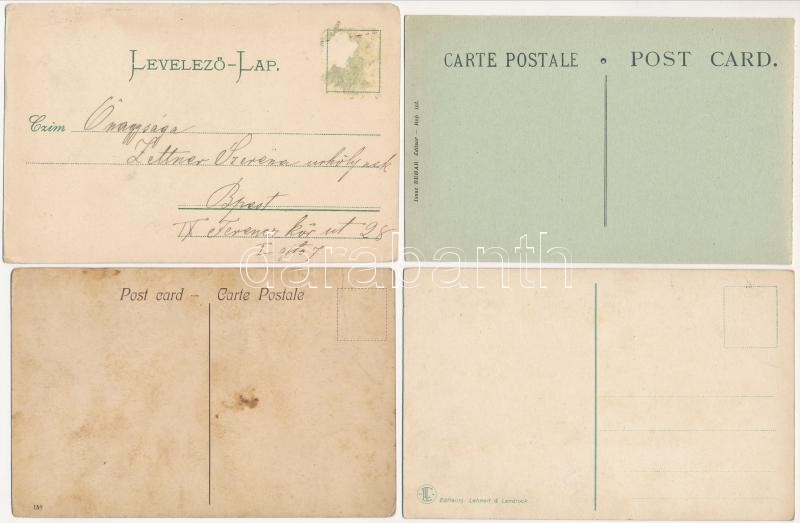 LEVELEZŐ-LAP.
Czim Őnagysága
Zettner Szeréna urhölynek
Bpest
IX Ferencz kör ut 28
I. ajtó 7
CARTE POSTALE • POST CARD.
Isaac BEHAR Éditeur — Rep. int.
darabanth
Post card — Carte Postale
Editeurs: Lehnert & Landrock
LL